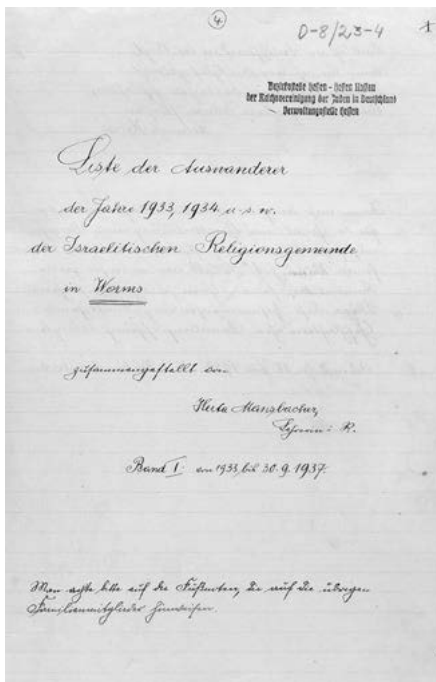 4
D-8/23-4
1
Bezirksstelle Hessen - Hessen Nassau
der Reichsvereinigung der Juden in Deutschland
Verwaltungsstelle Hessen
Liste der Auswanderer
der Jahre 1933, 1934 u.s.w.
der Israelitischen Religionsgemeinde
in Worms
zusammengestellt von
Herta Mansbacher,
Lehrerin i. R.
Band I. von 1933 bis 30.9.1937.
Man achte bitte auf die Fußnoten, die auf die übrigen
Familienmitglieder hinweisen.